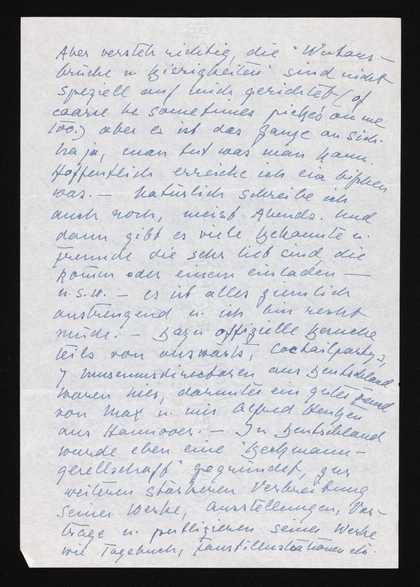 Aber versteh richtig, die "Wutaus-
brüche u. Gierigkeiten" sind nicht
speziell auf mich gerichtet (of
course he sometimes picks on me
too.) aber es ist das ganze an sich.
Na ja, man tut was man kann.
Hoffentlich erreiche ich ein bischen
was. — Natürlich schreibe ich
auch noch, meist Abends. Und
dann gibt es viele Bekannte u.
Freunde die sehr lieb sind, die
kommen oder einem einladen —
u.s.w. — es ist alles ziemlich
anstrengend u. ich bin recht
müde. — Dazu offizielle Besuche
teils von auswärts, Cocktailpartys,
7 Museumsdirectoren aus Deutschland
waren hier, darunter ein guter Freund
von Max u. mir Alfred Hentzen
aus Hannover. — In Deutschland
wurde eben eine "Beckmann-
gesellschaft" gegründet, zur
weiteren stärkeren Verbreitung
seiner Werke, Ausstellungen, Vor-
träge u. publizieren seiner Werke
wie Tagebuch, Faustillustrationen etc.